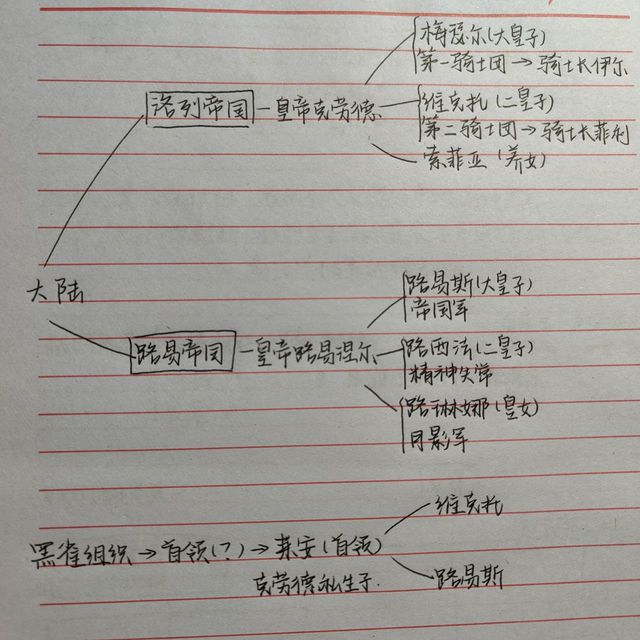 梅瑟尔(大皇子)
第一骑士团→骑士长伊尔
洛列帝国-皇帝克劳德
维克托(二皇子)
第二骑士团→骑士长菲利
索菲亚(养女)
大陆
路易斯(大皇子)
帝国军
路易帝国-皇帝路易涅尔
路西法(二皇子)
精神失常
路琳娜(皇女)
月影军
维克托
黑雀组织→首领(?)→莱安(首领)
克劳德私生子.
路易斯